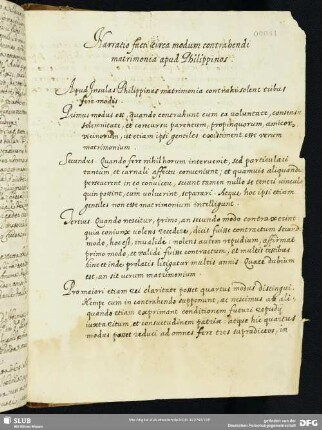 Narratio facti circa modum contrahendi
matrimonia apud Philippinos.
Apud Insulas Philippinas matrimonia contrahi solent tribus
fere modis.
Primus modus est, Quando contrahunt cum ea voluntate, consensu
solemnitate, et concursu parentum, propinquorum, amicorum,
vicinorum, ut etiam ipsi gentiles existiment esse verum
matrimonium.
Secundus. Quando fere nihil horum intervenit, sed particulari
tantum et carnali affectu conveniunt; et quamvis aliquando
perseverent in eo convictu, sciunt tamen nullo se teneri vinculo
quin possint, cum voluerint, separari. Atque hoc ipsi etiam
gentiles non esse matrimonium intelligunt.
Tertius. Quando nescitur, primo, an secundo modo contraxerint
quia coniunx volens recedere, dicit fuisse contractum secundo
modo, hoc est, invalide: nolens autem repudium, affirmat
primo modo, et valide fuisse contractum, et multis testibus
hinc et inde prolatis litigatur multis annis. Quare dubium
est, an sit verum matrimonium.
Pro maiori etiam rei claritate posset quartus modus distingui.
Nempe cum in contrahendo supponunt, ac nescimus ab ali-
quando etiam exprimant conditionem futuri repudij
iuxta ritum, et consuetudinem patriae. atque hic quartus
modus potest reduci ad omnes fere tres supradictos, in
SLUB
DFG